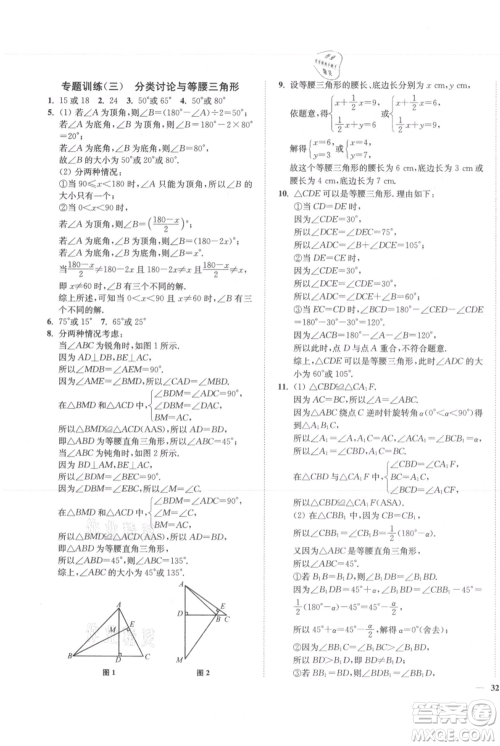 专题训练(三) 分类讨论与等腰三角形
1. 15或18 2. 24 3. 50°或65° 4. 50°或80°
5. (1)若∠A为顶角,则∠B=(180°-∠A)÷2=50°;
若∠A为底角,∠B为顶角,则∠B=180°-2×80°=20°;
若∠A为底角,∠B为底角,则∠B=80°.
故∠B的大小为50°或20°或80°.
(2)分两种情况:
①当90≤x<180时,∠A只能为顶角,
所以∠B的大小只有一个;
②当0<x<90时,
若∠A为顶角,则∠B=(180-x/2)°;
若∠A为底角,∠B为顶角,则∠B=(180-2x)°;
若∠A为底角,∠B为底角,则∠B=x°.
当180-x/2≠180-2x且180-2x≠x且180-x/2≠x,
即x≠60时,∠B有三个不同的大小.
综上所述,当0<x<90且x≠60时,∠B有三个不同的大小.
6. 75°或15° 7. 65°或25°
8. 分两种情况考虑:
当△ABC为锐角三角形时,如图1所示.
因为AD⊥DB,BE⊥AC,
所以∠MDB=∠AEM=90°.
因为∠AME=∠BMD,所以∠CAD=∠MBD.
在△BMD和△ACD中,{∠BDM=∠ADC=90°, ∠DBM=∠DAC, BM=AC,
所以△BMD≌△ACD(AAS),所以AD=BD,
即△ABD为等腰直角三角形,所以∠ABC=45°.
当△ABC为钝角三角形时,如图2所示.
因为BD⊥AM,BE⊥AC,
所以∠BDM=∠BEC=90°.
因为∠DBM=∠EBC,所以∠M=∠C.
在△BMD和△ACD中,{∠BDM=∠ADC=90°, ∠M=∠C, BM=AC,
所以△BMD≌△ACD(AAS),所以AD=BD,
即△ABD为等腰直角三角形,
所以∠ABD=45°,则∠ABC=135°.
综上,∠ABC的大小为45°或135°.
A
E
M
B
D
C
图1
图2
9. 设等腰三角形的腰长、底边长分别为x cm,y cm,
依题意,得{x+1/2x=9, 1/2x+y=6,或{x+1/2x=6, 1/2x+y=9,
解得{x=6, y=3,或{x=4, y=7,
故这个等腰三角形的腰长为6 cm,底边长为3 cm或
腰长为4 cm,底边长为7 cm.
10. △CDE可以是等腰三角形.理由如下:
①当CD=DE时,
因为∠CDE=30°,
所以∠DCE=∠DEC=75°,
所以∠ADC=∠B+∠DCE=105°.
②当DE=CE时,
因为∠CDE=30°,
所以∠DCE=∠CDE=30°,
所以∠ADC=∠DCE+∠B=60°.
③当CD=CE时,
因为∠CDE=30°,
所以∠CED=∠CDE=30°,
所以∠ECD=∠BCD=180°-∠CED-∠CDE
=180°-30°-30°=120°,
所以∠ADC=∠B+∠BCD=150°.
因为∠ADC=150°>∠ADE,不符合题意,舍去.
综上,△CDE可以是等腰三角形,此时∠ADC的大
小为60°或105°.
11. (1)△CBD≌△CA₁F.证明如下:
因为AC=BC,所以∠A=∠ABC.
因为△ABC绕点C逆时针旋转角α(0°<α<90°)得
到△A₁B₁C,
所以∠A₁=∠A,A₁C=AC,∠ACA₁=∠BCB₁=α,
所以∠A₁=∠CBD,A₁C=BC.
在△CBD和△CA₁F中,{∠CBD=∠A₁, BC=A₁C, ∠BCD=∠A₁CF,
所以△CBD≌△CA₁F(ASA).
(2)在△CBB₁中,因为CB=CB₁,
所以∠CBB₁=∠CB₁B=1/2(180°-α).
又因为△ABC是等腰直角三角形,
所以∠ABC=45°.
①若B₁B=B₁D,则∠B₁DB=∠B₁BD.
因为∠B₁DB=45°+α,∠B₁BD=∠CBB₁-45°=
1/2(180°-α)-45°=45°-α/2,
所以45°+α=45°-α/2,所以α=0°(舍去);
②因为∠BB₁C=∠CBB₁>∠B₁BD,
所以BD>B₁D,即BD≠B₁D;
③若BB₁=BD,则∠BDB₁=∠BB₁D,
32